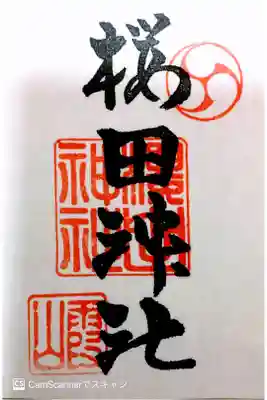 桜田神社
櫻田神社
霞山
CamScannerでスキャン